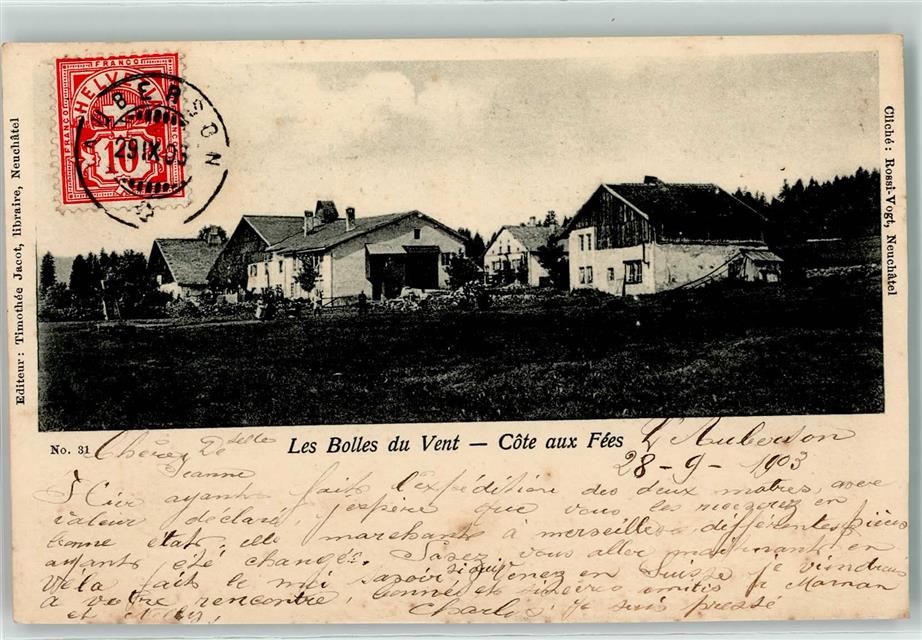 FRANCO
HELVETIA
FRANCO
FRANCO
10
AUBERSON
29 IX 03
Editeur: Timothée Jacot, libraire, Neuchâtel
Cliché: Rossi-Vogt, Neuchâtel
No. 31
Les Bolles du Vent — Côte aux Fées
L'Auberson
28-9-1903
Chère
Jeanne
ayant fait l'expédition des deux montres, avec
valeur déclaré, j'espère que vous les recevrez en
bonne état, elle marchant à merveille différentes pièces
ayant été changée. vous aller maintenant en
fait le moi savoir si vous venez en Suisse je viendrais
à votre rencontre, bonne et sincères amitis à Maman
et Charles je suis pressé